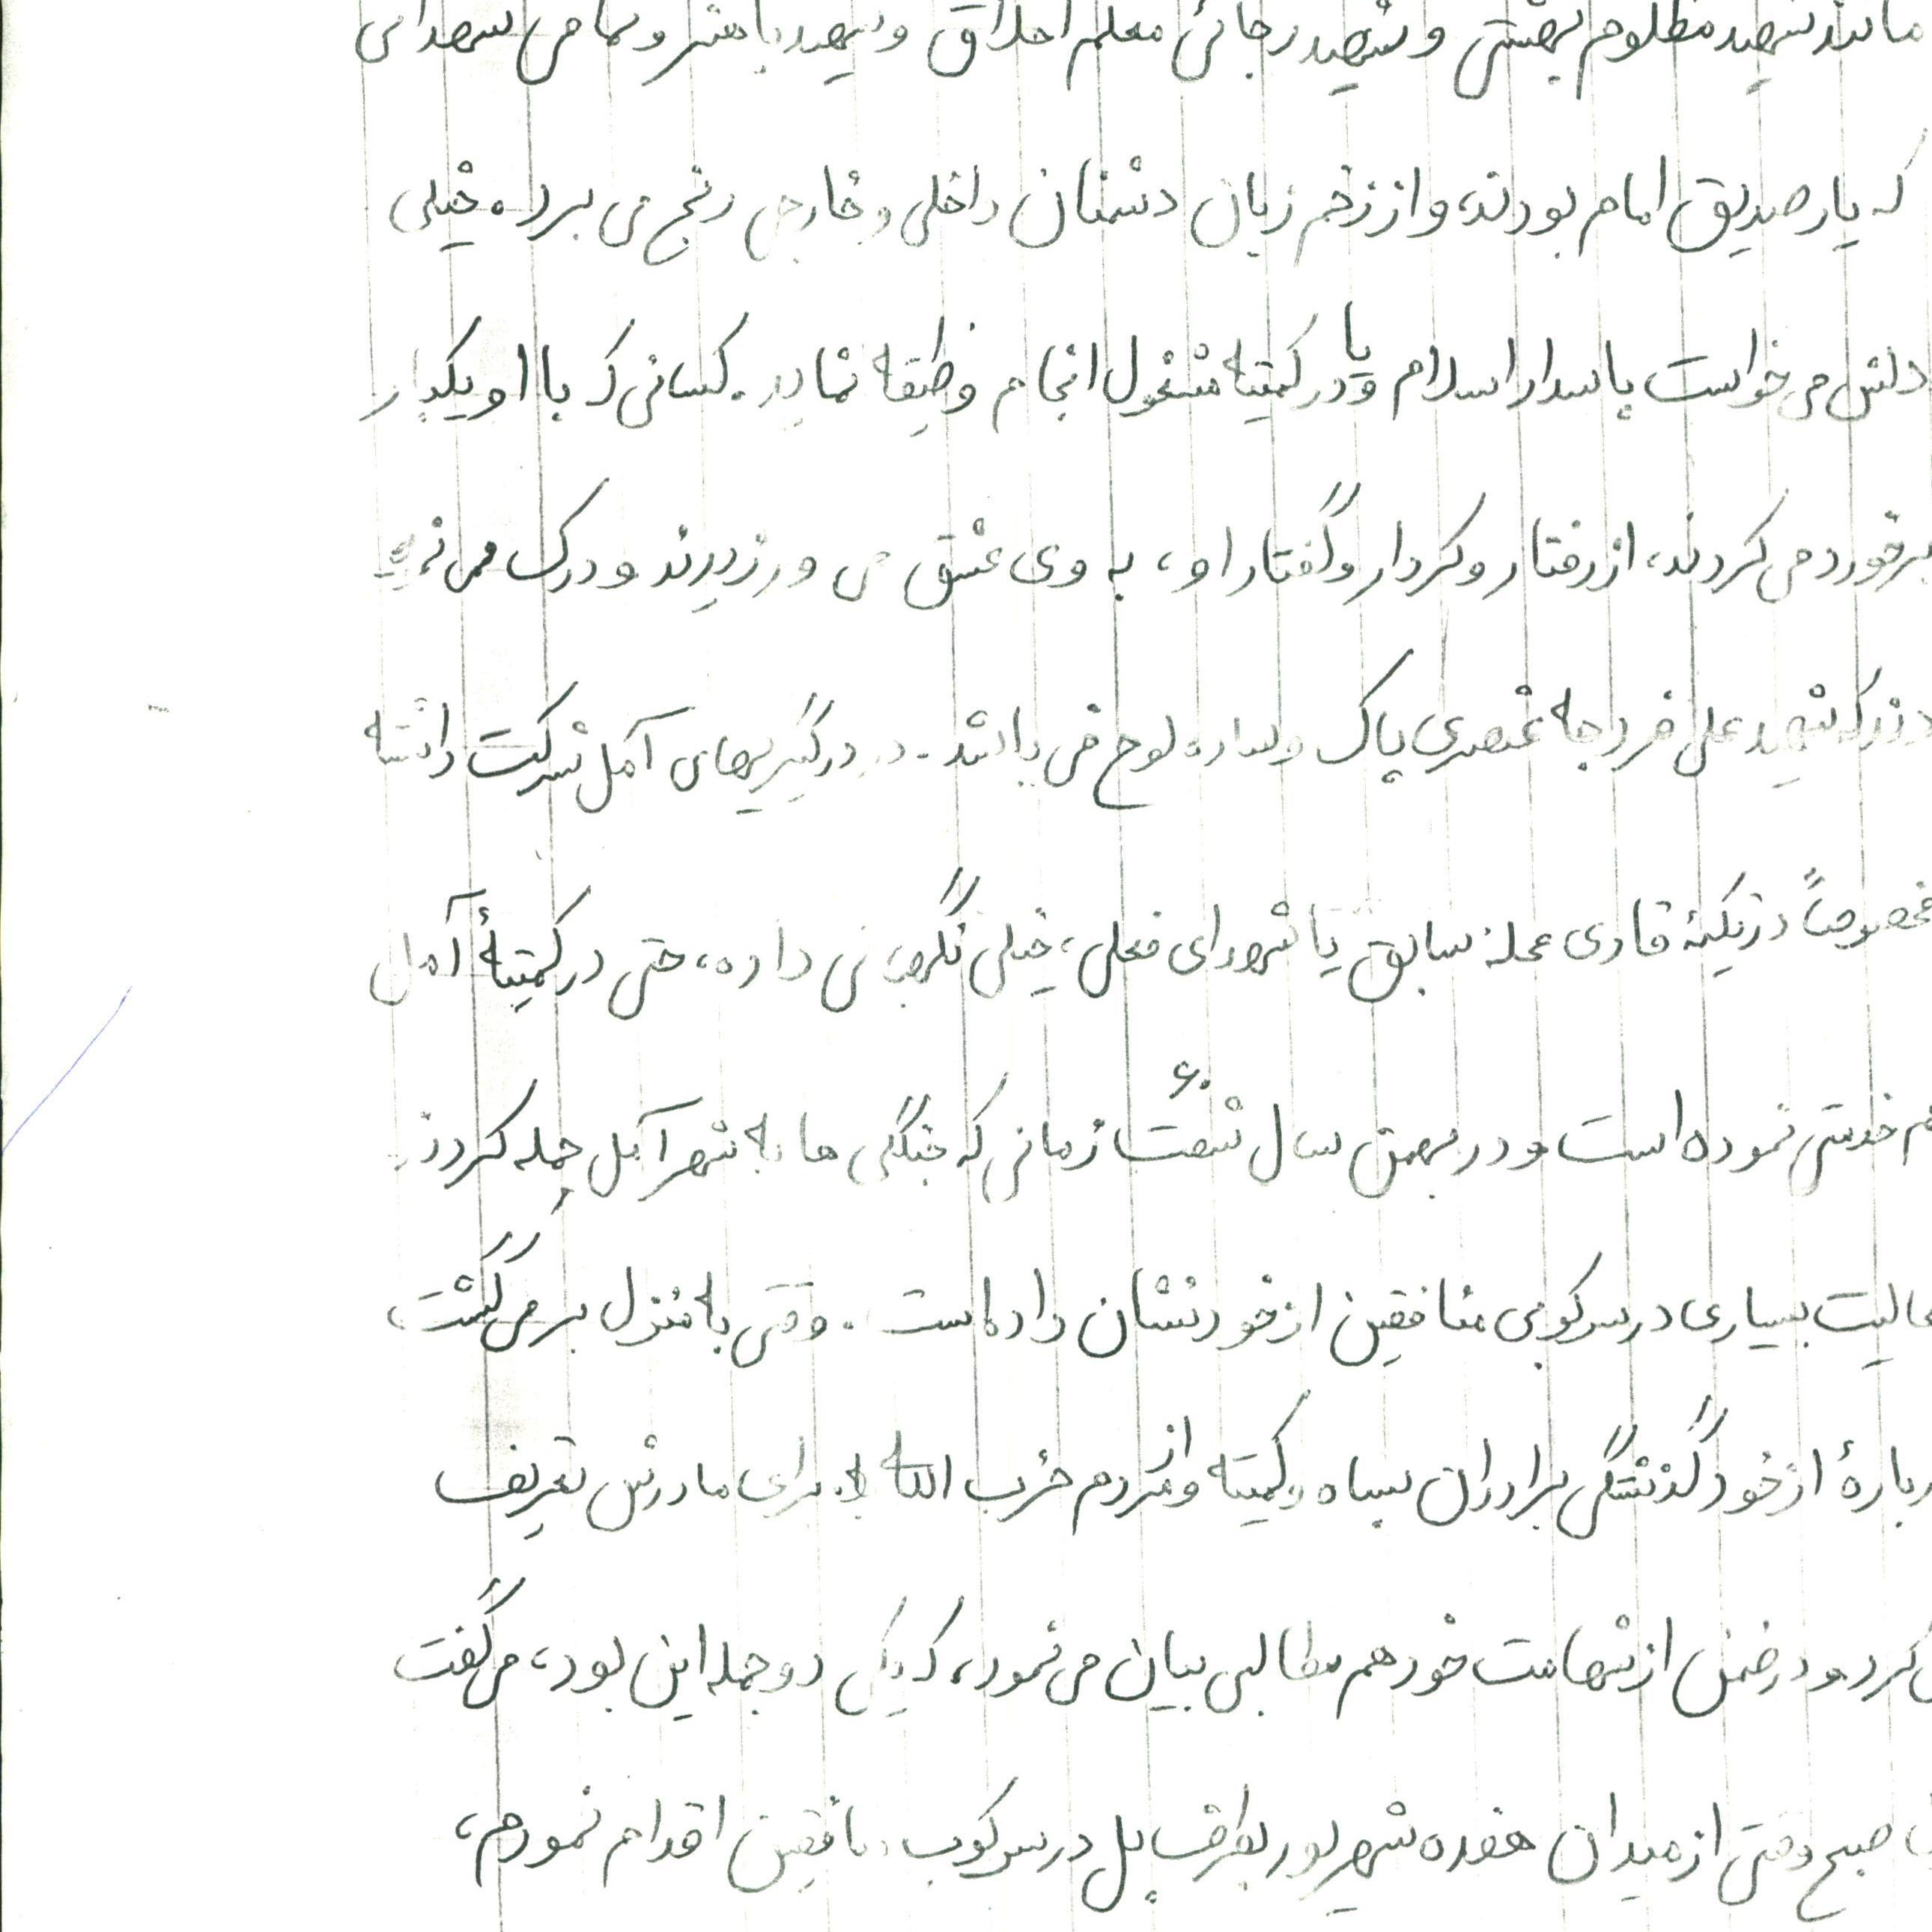 مانند شهید مظلوم بهشتی و شهید رجائی معلم اخلاق و شهید باهنر و تمامی شهدائی
که یار صدیق امام بودند، و از زخم زبان دشمنان داخلی و خارجی رنج می برد. خیلی
دلش می خواست پاسدار اسلام و یا در کمیته مشغول انجام وظیفه نماید. کسانی که با او یکبار
برخورد می کردند، از رفتار و کردار و گفتار او، به وی عشق می ورزیدند و درک می
که شهید علی عنصری پاک و ساده لوح می باشد. در درگیریهای آمل شرکت داشته
مخصوصاً در تکیهٔ قادی محله سابق یا شهدای فعلی، خیلی نگهبانی داده، حتی در کمیتهٔ آمل
هم خدمتی نموده است و در بهمن سال شصت ۶۰ زمانی که جنگلی ها به شهر آمل حمله کردند
عالیت بسیاری در سرکوبی منافقین از خود نشان داده است. وقتی به منزل بر می گشت،
ربارهٔ از خود گذشتگی برادران سپاه و کمیته و از مردم حزب الله برای مادرش تعریف
می کرد و در ضمن از شهامت خود هم مطالبی بیان می نمود، که یکی دو جمله این بود، می گفت
صبح وقتی از میدان هفده شهریور بطرف پل در سرکوب منافقین اقدام نمودم،